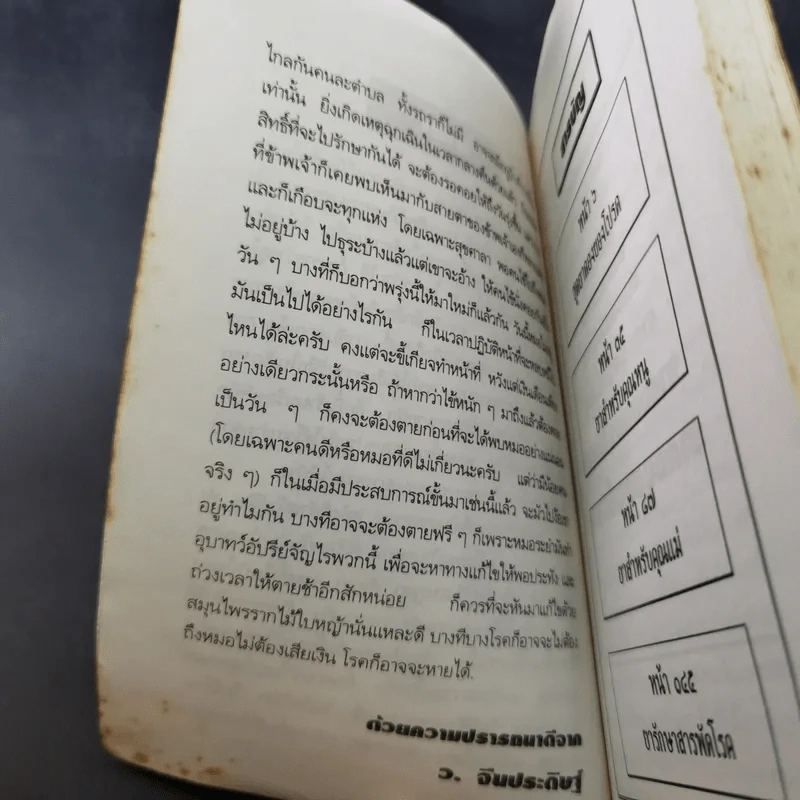 ไกลกันคนละตำบล ทั้งรถราก็ไม่มี
เท่านั้น ยิ่งเกิดเหตุฉุกเฉินในเวลากลางคืนด้วยแล้ว
สิทธิ์ที่จะไปรักษากันได้ จะต้องรอคอยให้ถึงวันรุ่งขึ้น
ที่ข้าพเจ้าก็เคยพบเห็นมากับสายตาของข้าพเจ้าเอง
และก็เกือบจะทุกแห่ง โดยเฉพาะสุขศาลา พอคนไข้ไปถึง
ไม่อยู่บ้าง ไปธุระบ้างแล้วแต่เขาจะอ้าง ให้คนไข้นั่งคอย
วัน ๆ บางที่ก็บอกว่าพรุ่งนี้ให้มาใหม่ก็แล้วกัน วันนี้หมอ
มันเป็นไปได้อย่างไรกัน ก็ในเวลาปฏิบัติหน้าที่จะหลบหนีไป
ไหนได้ล่ะครับ คงแต่จะขี้เกียจทำหน้าที่ หวังแต่เงินเดือน
อย่างเดียวกระนั้นหรือ ถ้าหากว่าไข้หนัก ๆ มาถึงแล้วต้อง
เป็นวัน ๆ ก็คงจะต้องตายก่อนที่จะได้พบหมออย่างแน่นอน
(โดยเฉพาะคนดีหรือหมอที่ดีไม่เกี่ยวนะครับ แต่ว่ามีน้อยคน
จริง ๆ) ก็ในเมื่อมีประสบการณ์ขั้นมาเช่นนี้แล้ว จะมัวไป
อยู่ทำไมกัน บางทีอาจจะต้องตายฟรี ๆ ก็เพราะหมอระยำ
อุบาทว์อัปรีย์จัญไรพวกนี้ เพื่อจะหาทางแก้ไขให้พอประทัง และ
ถ่วงเวลาให้ตายช้าอีกสักหน่อย ก็ควรที่จะหันมาแก้ไขด้วย
สมุนไพรรากไม้ใบหญ้านั่นแหละดี บางทีบางโรคก็อาจจะไม่ต้อง
ถึงหมอไม่ต้องเสียเงิน โรคก็อาจจะหายได้.
ด้วยความปรารถนาดีจาก
ว. จีนประดิษฐ์
หน้า ๖
หน้า ๑๕
ยาสำหรับคุณหนู
หน้า ๔๗
ยาสำหรับคุณแม่
หน้า ๑๔๕
ยารักษาสารพัดโรค